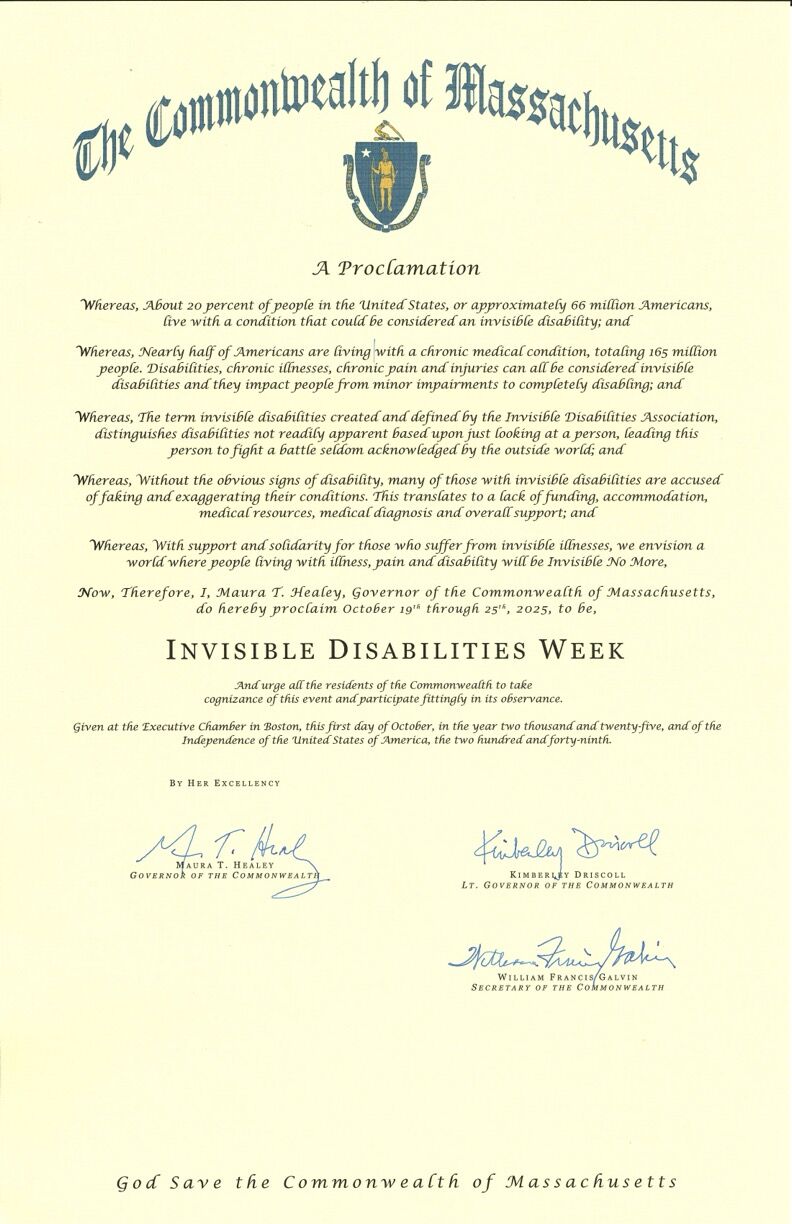 The Commonwealth of Massachusetts
A Proclamation
Whereas, About 20 percent of people in the United States, or approximately 66 million Americans,
live with a condition that could be considered an invisible disability; and
Whereas, Nearly half of Americans are living with a chronic medical condition, totaling 165 million
people. Disabilities, chronic illnesses, chronic pain and injuries can all be considered invisible
disabilities and they impact people from minor impairments to completely disabling; and
Whereas, The term invisible disabilities created and defined by the Invisible Disabilities Association,
distinguishes disabilities not readily apparent based upon just looking at a person, leading this
person to fight a battle seldom acknowledged by the outside world; and
Whereas, Without the obvious signs of disability, many of those with invisible disabilities are accused
of faking and exaggerating their conditions. This translates to a lack of funding, accommodation,
medical resources, medical diagnosis and overall support; and
Whereas, With support and solidarity for those who suffer from invisible illnesses, we envision a
world where people living with illness, pain and disability will be Invisible No More,
Now, Therefore, I, Maura T. Healey, Governor of the Commonwealth of Massachusetts,
do hereby proclaim October 19th through 25th, 2025, to be,
INVISIBLE DISABILITIES WEEK
And urge all the residents of the Commonwealth to take
cognizance of this event and participate fittingly in its observance.
Given at the Executive Chamber in Boston, this first day of October, in the year two thousand and twenty-five, and of the
Independence of the United States of America, the two hundred and forty-ninth.
BY HER EXCELLENCY
M. T. Healey
MAURA T. HEALEY
GOVERNOR OF THE COMMONWEALTH
Kimberley Driscoll
KIMBERLEY DRISCOLL
LT. GOVERNOR OF THE COMMONWEALTH
William Francis Galvin
WILLIAM FRANCIS GALVIN
SECRETARY OF THE COMMONWEALTH
God Save the Commonwealth of Massachusetts